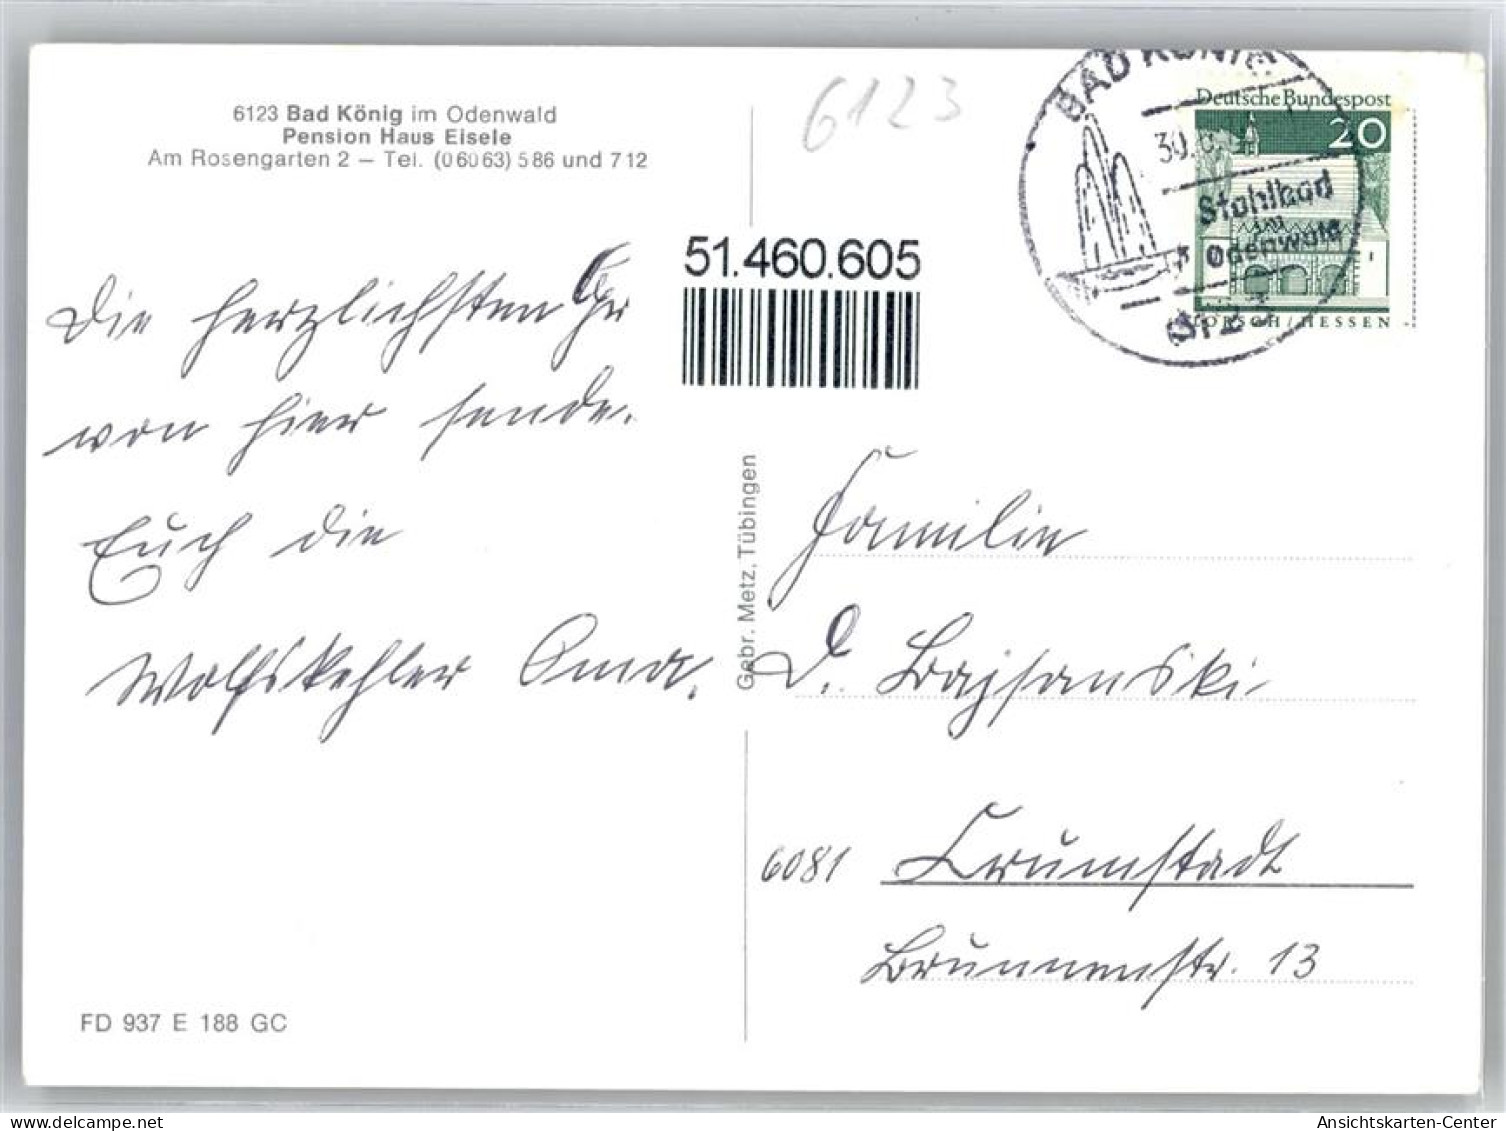 6123 Bad König im Odenwald
Pension Haus Eisele
Am Rosengarten 2 – Tel. (06063) 586 und 712
6123
BAD KÖNIG
30.
Stahlbad
im
Odenwald
6123
Deutsche Bundespost
20
LORSCH / HESSEN
51.460.605
Die herzlichsten Gr
von hier sende.
Euch die
Wolfskehler Oma.
Gebr. Metz, Tübingen
Familie
D. Bajsanski
6081 Crumstadt
Brunnenstr. 13
FD 937 E 188 GC
oldthing.de
Ansichtskarten-Center